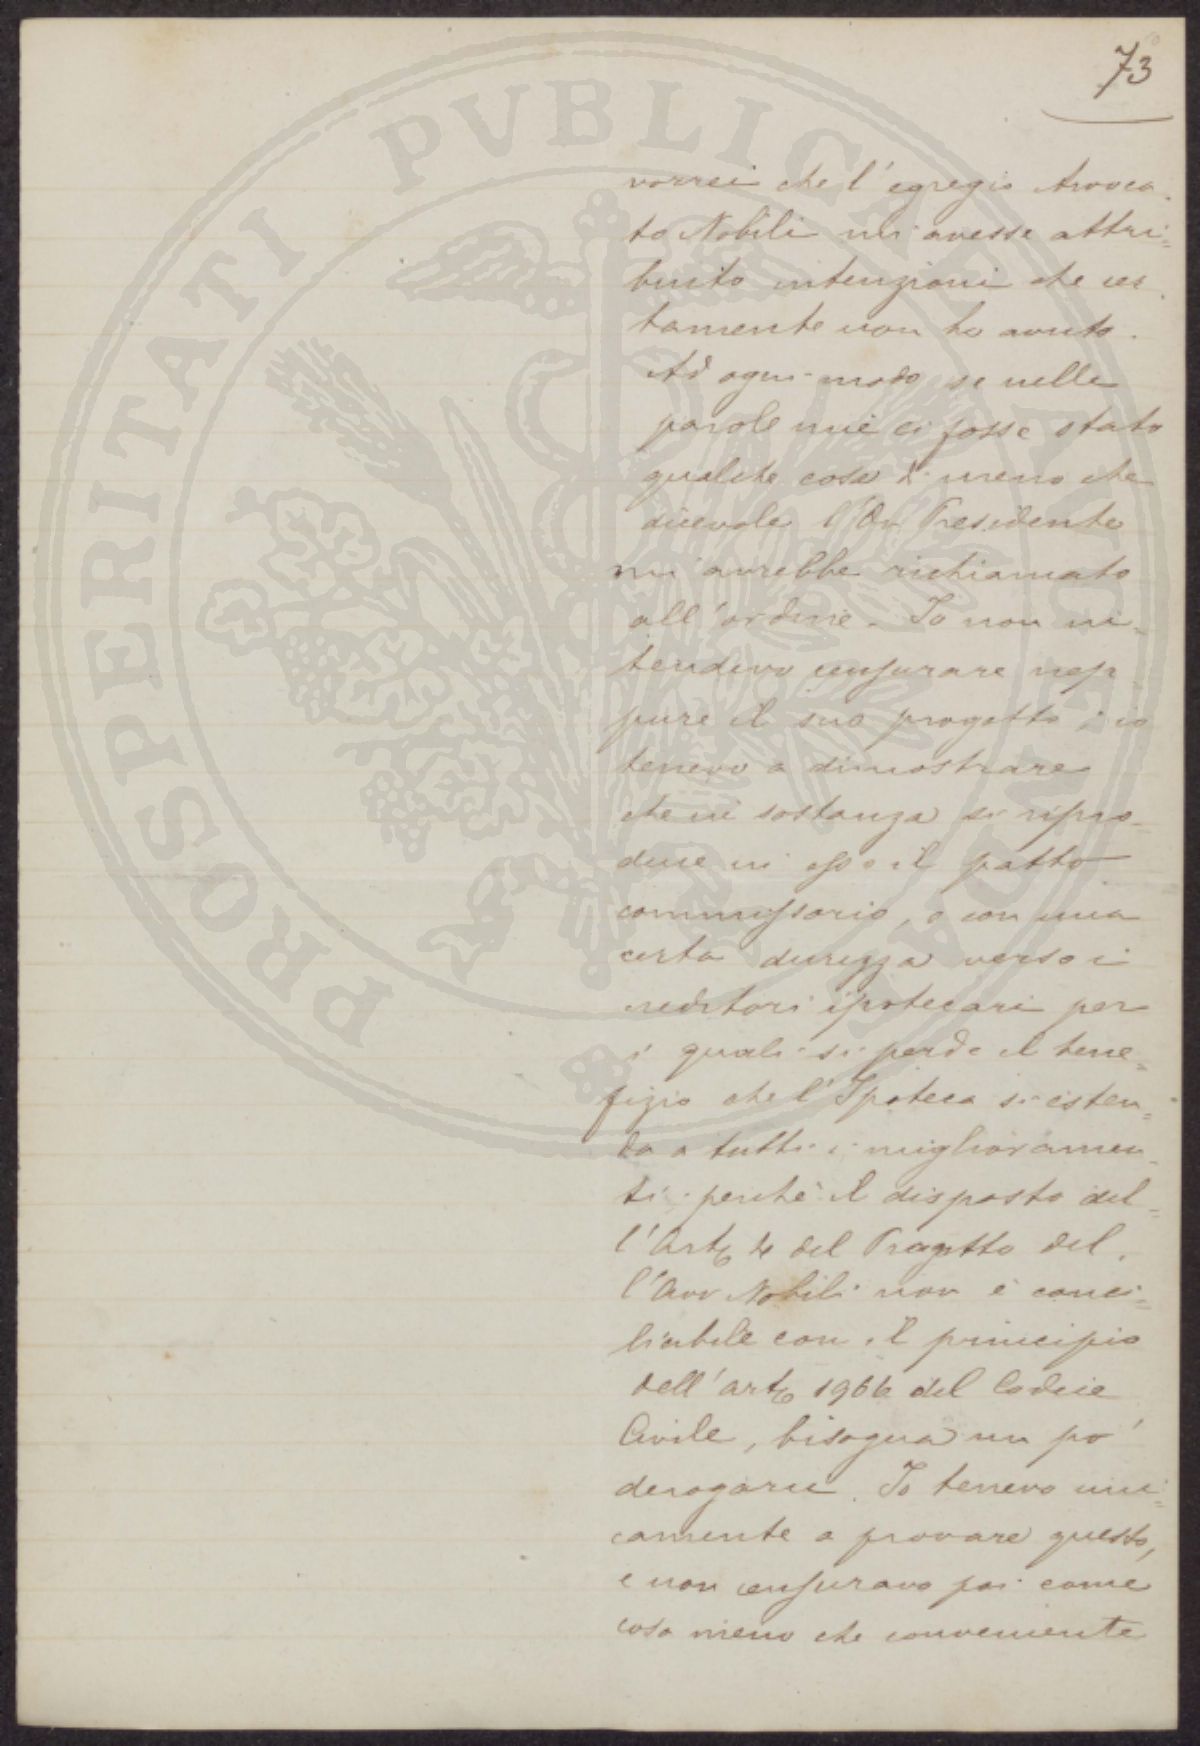 73
vorrei che l'egregio Avvoca
to Nobili mi avesse attri=
buito intenzioni che cer
tamente non ho avuto.
Ad ogni modo se nelle
parole mie ci fosse stato
qualche cosa di meno che
dicevole l'On Presidente
mi avrebbe richiamato
all'ordine. Io non in=
tendevo censurare nep
pure il suo progetto; io
tenevo a dimostrare
che in sostanza si ripro=
duce in esso il patto
commissorio, e con una
certa durezza verso i
creditori ipotecari per
i quali si perde il bene=
fizio che l'Ipoteca si esten=
da a tutti i miglioramen
ti perchè il disposto del=
l'Arto 4 del Progetto del.
l'Avv Nobili non è conci=
liabile con il principio
dell'arto 1966 del Codice
Civile, bisogna un po'
derogarci. Io tenevo uni=
camente a provare questo,
e non censuravo poi come
cosa meno che conveniente
PROSPERITATI PVBLICAE AVGENDAE